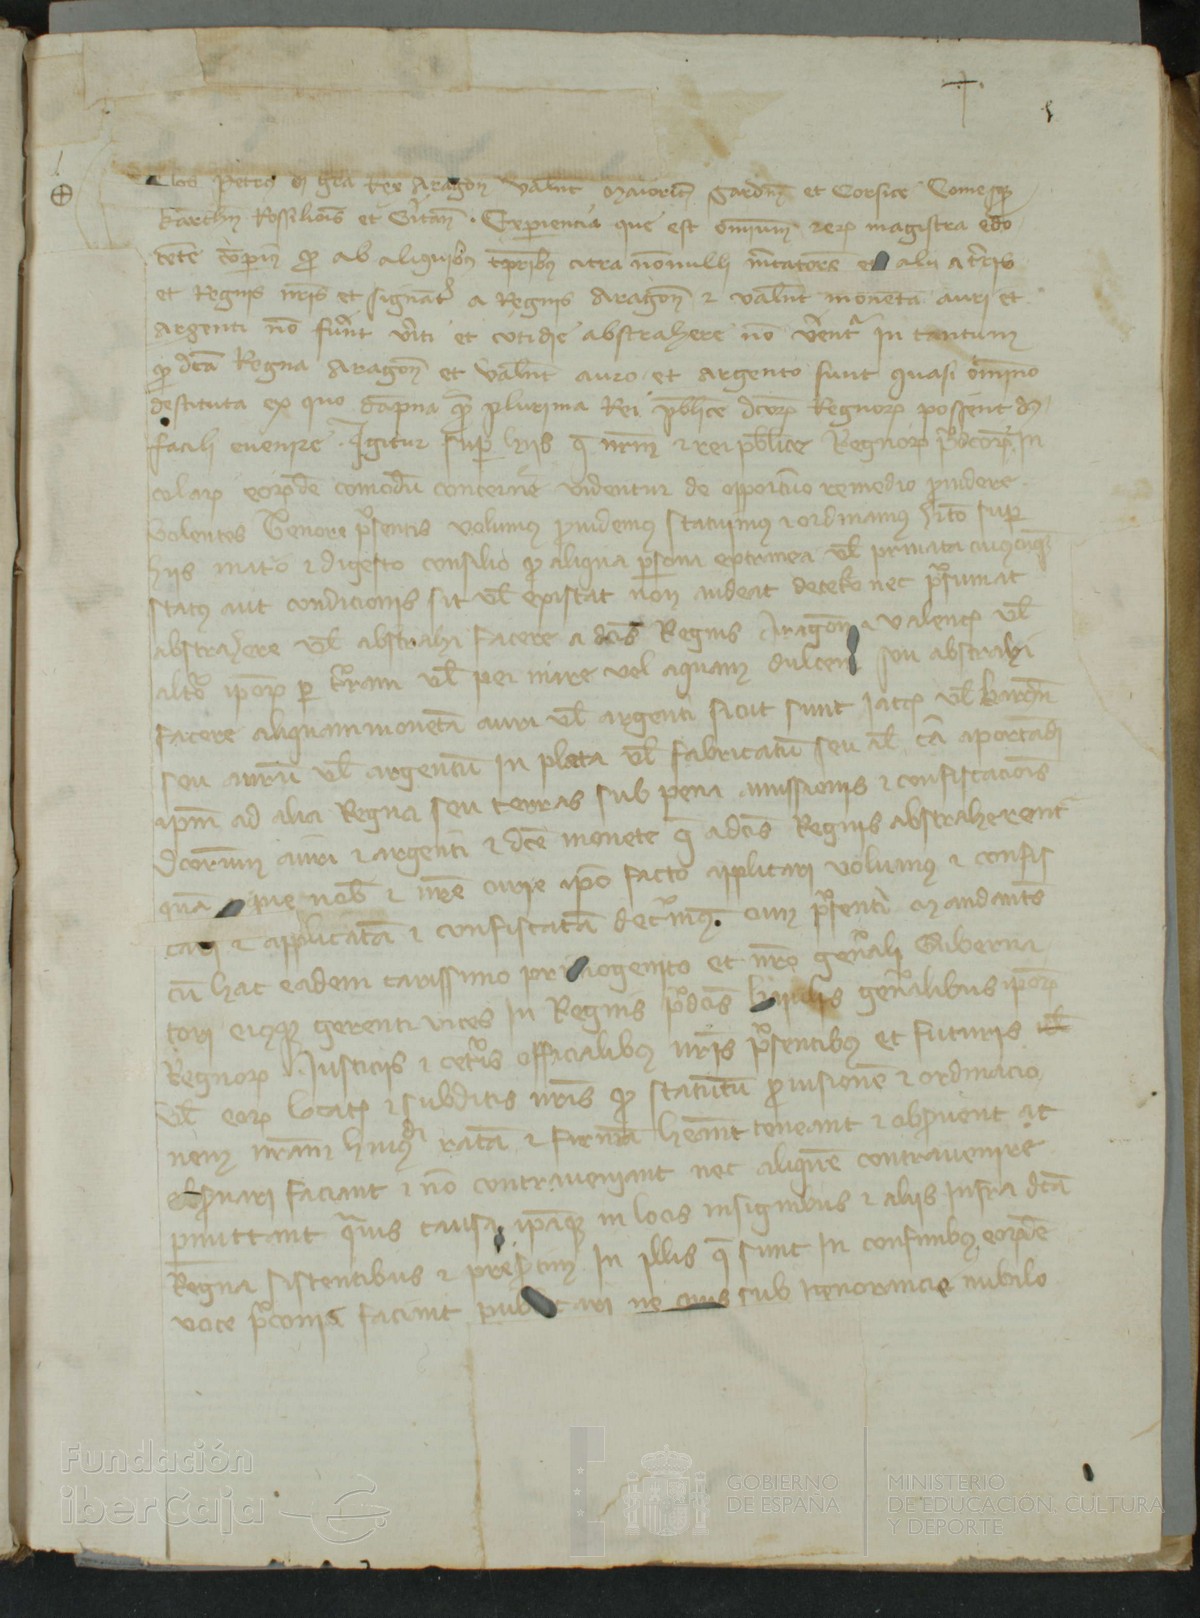 Nos Petrus dei gra rex Aragon Valent Maioric Sardin et Corsice Comesq
Barchn Rossilionis et Ceritan. Experiencia que est omnium rerum magistra edo
cente comperim quod ab aliquibus temporibus citra nonnulli mercatores et alii a terris
et Regnis nris et signant a Regnis Aragon et Valent moneta auri et
argenti non sunt veriti et cotidie abstrahere non verentur in tantum
quod dca Regna Aragon et Valent auro et argento sunt quasi omnino
destituta ex quo dampna quam plurima Rei publice dcorum Regnorum possent de
facili evenire. Igitur super hiis que nrm et rei publice Regnorum predcorum in
colarum eorumdem comodum concernere videntur de opportuno remedio providere
volentes Tenore presentis volumus providemus statuimus et ordinamus hito super
hiis maturo et digesto consilio quod aliqua persona extranea vel privata cuiuscumque
status aut condicionis sit vel existat non audeat decetero nec presumat
abstrahere vel abstrahi facere a dcis Regnis Aragon et Valencie vel
altero ipsorum per terram vel per mare vel aquam dulcem seu abstrahi
facere aliquam monetam auri vel argenti sicut sunt Jacce vel barchn
seu aurum vel argentum in plata vel fabricatum seu al causa aportandi
ipsum ad alia Regna seu terras sub pena amissionis et confiscacionis
dcorum auri et argenti et dce monete que a dcis Regnis abstraherent
quam nob et nre curie ipso facto applicari volumus et confis
cari et applicatam et confiscatam decernimus. cum presenti mandantes
cum hac eadem carissimo primogenito et nro generali Guberna
tori eiusque gerenti vices in Regnis predcis baiulis generalibus ipsorum
Regnorum Justiciis et ceteris officialibus nris presentibus et futuris
vel eorum locatn et subditis nris quod statutum provisionem et ordinacio
nem nram huiusmodi ratam et firmam heant teneant et observent ac
observari faciant et non contraveniant nec aliquem contravenire
permittant quavis causa ipamque in locis insignibus et aliis infra dca
Regna sistentibus et presertim in illis que sunt in confinibus eorumdem
voce preconis faciant publicari ne cuius sub ignorancie nubilo
Fundación
iberCaja
GOBIERNO
DE ESPAÑA
MINISTERIO
DE EDUCACIÓN, CULTURA
Y DEPORTE